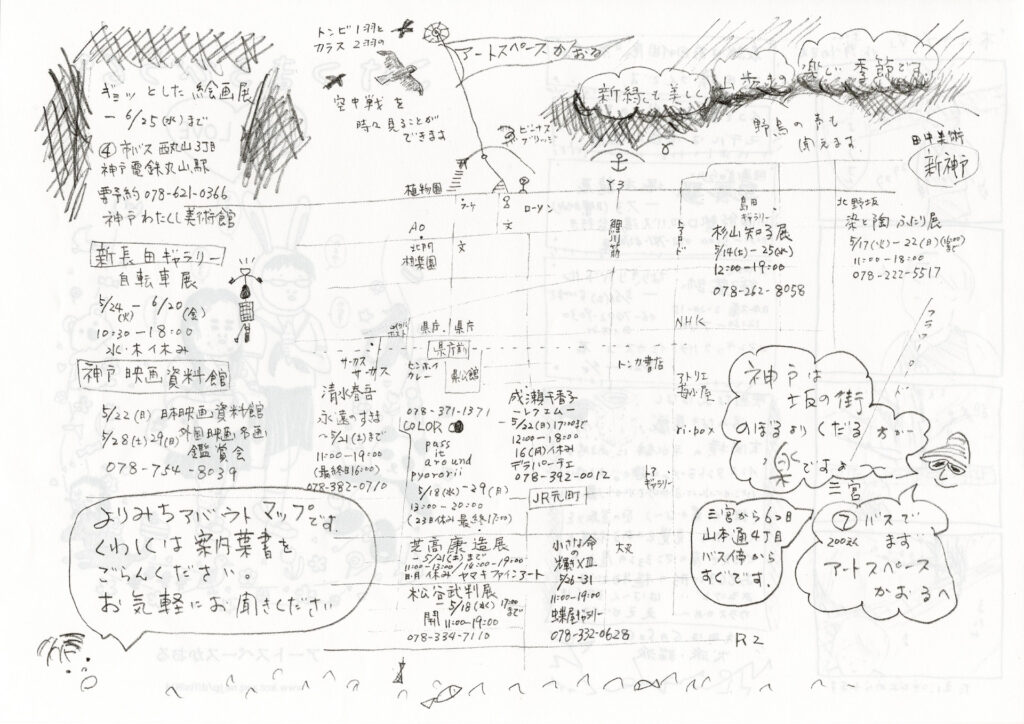 トンビ1羽と
カラス2羽の
空中戦を
時々見ることが
できます
アートスペースかおる
新緑も美しく
山歩きも
楽しい季節です
野鳥の声も
聞えます
ビーナス
ブリッジ
田中美術
新神戸
ギョッとした絵画展
ー6/25(水)まで
④市バス 西丸山3丁目
神戸電鉄丸山駅
要予約 078-621-0366
神戸わたくし美術館
新長田ギャラリー
自転車展
5/24(火)ー6/20(金)
10:30ー18:00
水・木休み
神戸映画資料館
5/22(日)日本映画資料館
5/28(土)29(日)外国映画名画
鑑賞会
078-754-8039
植物園
ローソン
文
文
AO
北門
相楽園
鯉川筋
島田
ギャラリー
杉山知子展
5/14(土)ー25(水)
12:00ー19:00
078-262-8058
北野坂
染と陶 ふたり展
5/17(火)ー22(日)(16:00まで)
11:00ー18:00
078-222-5517
NHK
県庁
県庁
県庁前
県公館
サーカス
サーカス
清水春吾
永遠のすみ
〜5/21(土)まで
11:00ー19:00
(最終日16:00)
078-382-0710
078-371-1371
COLOR
pass
it
around
pyororii
5/18(水)ー29(日)
13:00ー20:00
(23日休み 最終17:00)
成瀬千香子
ーレクエムー
ー5/22(日)17:00まで
12:00ー18:00
16(月)休み
078-392-0012
トンカ書店
アトリエ
ri-box
トア
ギャラリー
JR元町
神戸は
坂の街
のぼるよりくだる方が
楽ですよ
三宮
三宮から6つ目
山本通4丁目
バス停から
すぐです。
⑦バスで
200えん
ます
アートスペース
かおるへ
よりみちアバウトマップです。
くわしくは案内葉書を
ごらんください。
お気軽にお聞きください
芝高康造展
ー5/21(土)まで
11:00ー13:00/14:00ー19:00
休み ヤマキファインアート
松谷武判展
ー5/18(水)17:00まで
開 11:00ー19:00
078-334-7110
小さな命の
輝きXIII
5/26-31
11:00ー19:00
蝶屋ギャラリー
078-332-0628
大丸
R2